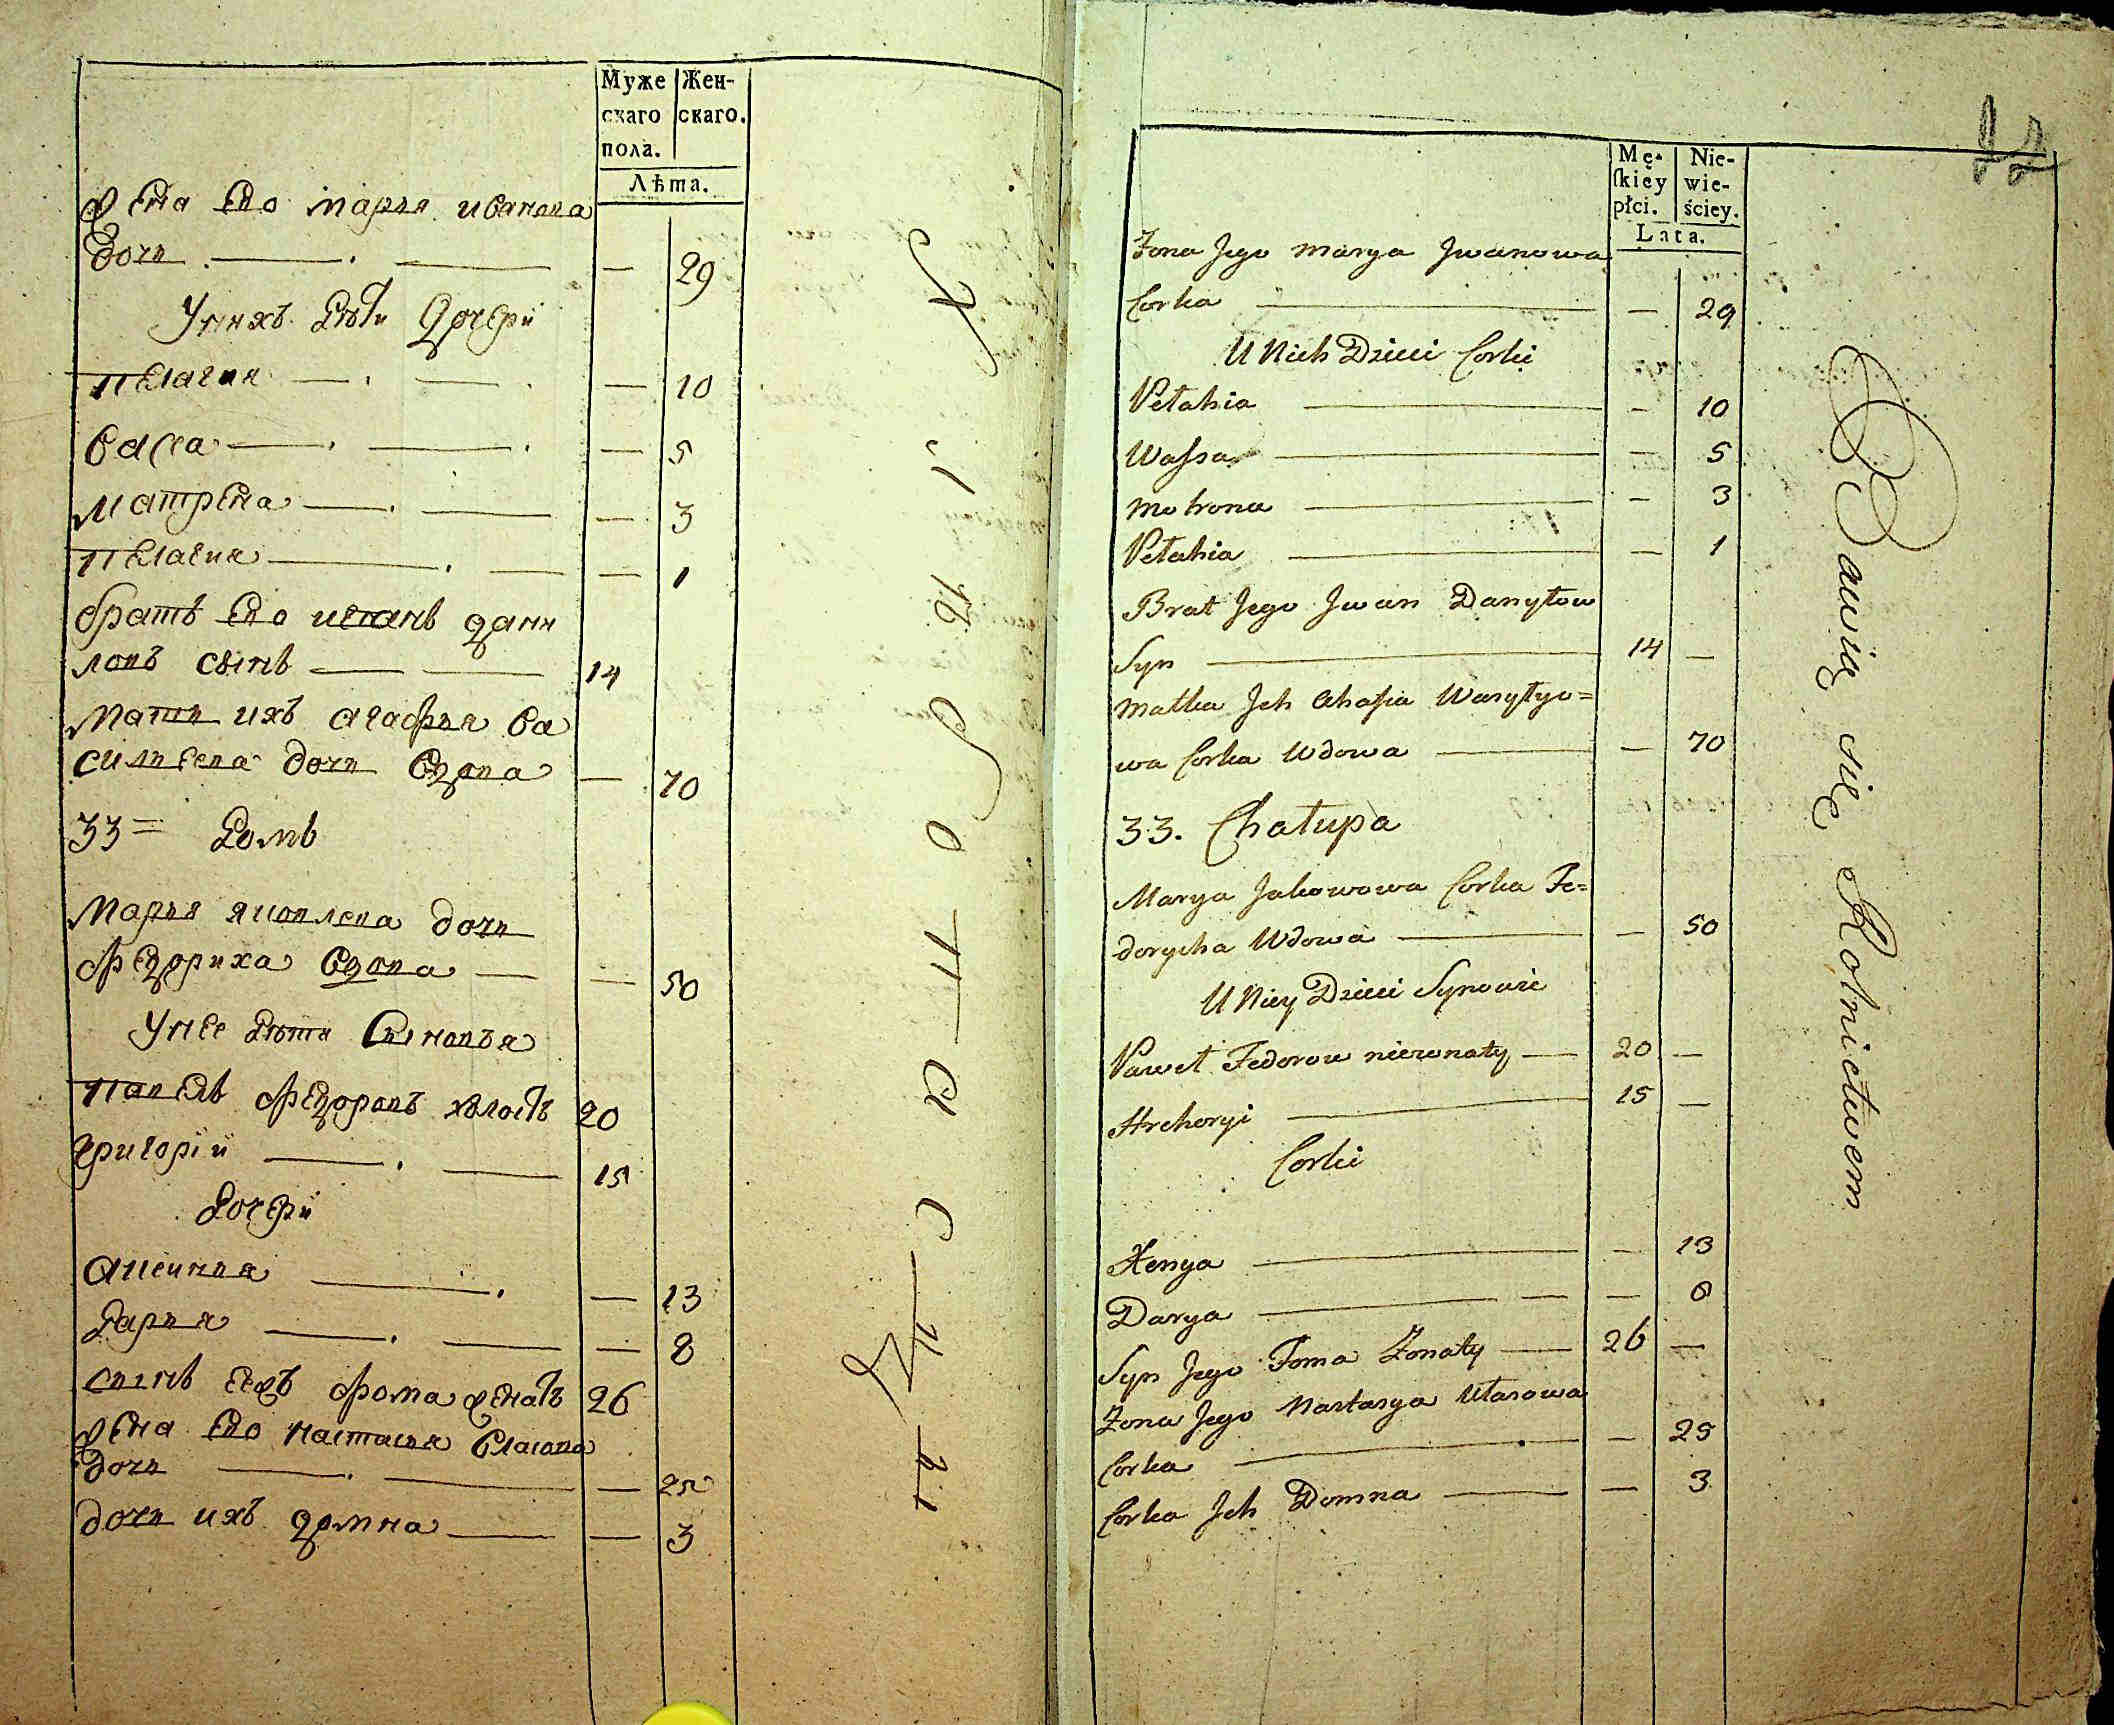 Муже
скаго
пола.
Жен-
скаго.
Лѣта.
жена ево марья иванова
дочь — 29
У нихъ дѣти дочери
пелагия — 10
васса — 5
матрена — 3
пелагия — 1
братъ ево иванъ дани
ловъ сынъ 14
мать ихъ агафья ва
сильева дочь вдова — 70
33 = домъ
марья яковлева дочь
федориха вдова — 50
У нее дѣти сыновья
павелъ федоровъ холостъ 20
григорiй 15
дочери
аксинья — 13
дарья — 8
сынъ еяжъ фома женатъ 26
жена ево настасья власова
дочь — 25
дочь ихъ домна — 3
Mę-
skiey
płci.
Nie-
wie-
ściey.
Lata.
Żona Jego Marya Jwanowa
Corka — 29
U Nich Dzieci Corki
Petahia — 10
Wassa — 5
Motrona — 3
Petahia — 1
Brat Jego Jwan Danyłow
Syn 14 —
Matka Jch Ahafia Wasyłyo=
wa Corka Wdowa — 70
33. Chałupa
Marya Jakowowa Corka Fe=
dorycha Wdowa — 50
U Niey Dzieci Synowie
Paweł Fedorow niezonaty 20 —
Hrehoryi 15 —
Corki
Xenya — 13
Darya — 8
Syn Jego Foma Zonaty 26 —
Zona Jego Nastasya Własowa
Corka — 25
Corka Jch Domna — 3
Bawią się Rolnictwem